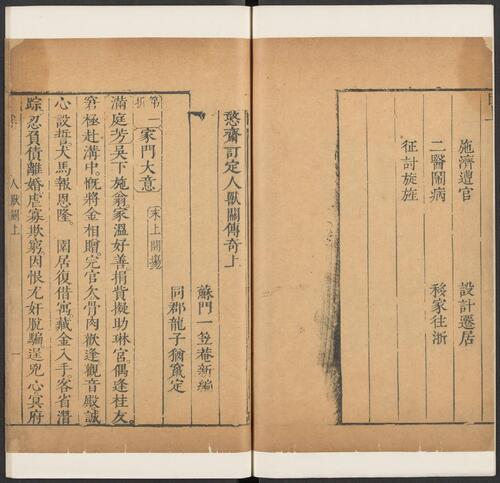 施濟遭官　設計遷居
二醫鬧病　移家往浙
征討旋旌
憨齋訂定人獸關傳奇上
蘇門一笠菴新編
同郡龍子猶竄定
第一折　家門大意　末上開場
滿庭芳吳下施翁家溫好善捐貲擬助琳宮偶逢桂友
窘極赴溝中慨將金相贈完官欠骨肉歡逢觀音殿誠
心設誓犬馬報恩隆　園居復借寓藏金入手客省潛
踪忍負債離婚虐寡欺窮因恨尤奸脫騙逞兇心冥府
人獸關上　一